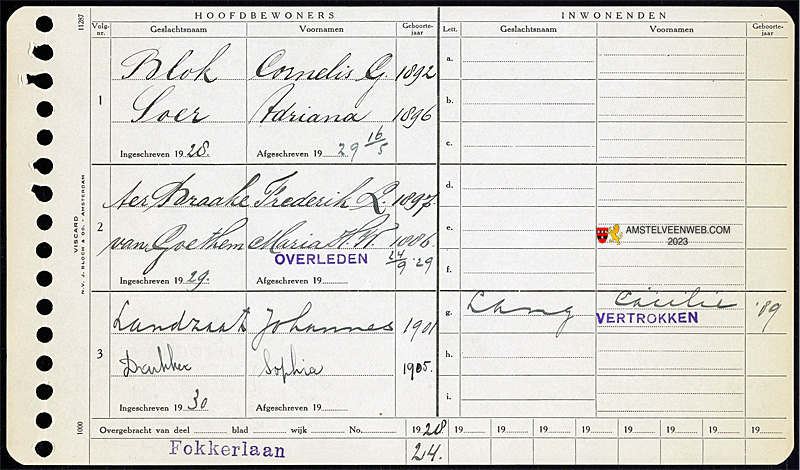 HOOFDBEWONERS
INWONENDEN
11287
Volg-nr.
Geslachtsnaam
Voornamen
Geboorte-jaar
Lett.
Geslachtsnaam
Voornamen
Geboorte-jaar
1
Blok Cornelis G. 1892
Soer Adriana 1896
Ingeschreven 1928. Afgeschreven 19 29 16/5
2
ter Braake Frederik L. 1897
van Goethem Maria H. W. 1886
OVERLEDEN 24/9 '29
Ingeschreven 1929. Afgeschreven 19
3
Landzaat Johannes 1901
Drukker Sophia 1905.
Ingeschreven 1930 Afgeschreven 19
a.
b.
c.
d.
e.
f.
g. Lang Cäcilie '89
VERTROKKEN
h.
i.
AMSTELVEENWEB.COM
2023
VISCARD
N.V. J. BLOCH & CO. - AMSTERDAM
1000
Overgebracht van deel blad wijk No. 1928 19 19 19 19 19 19 19 19
Fokkerlaan 24.